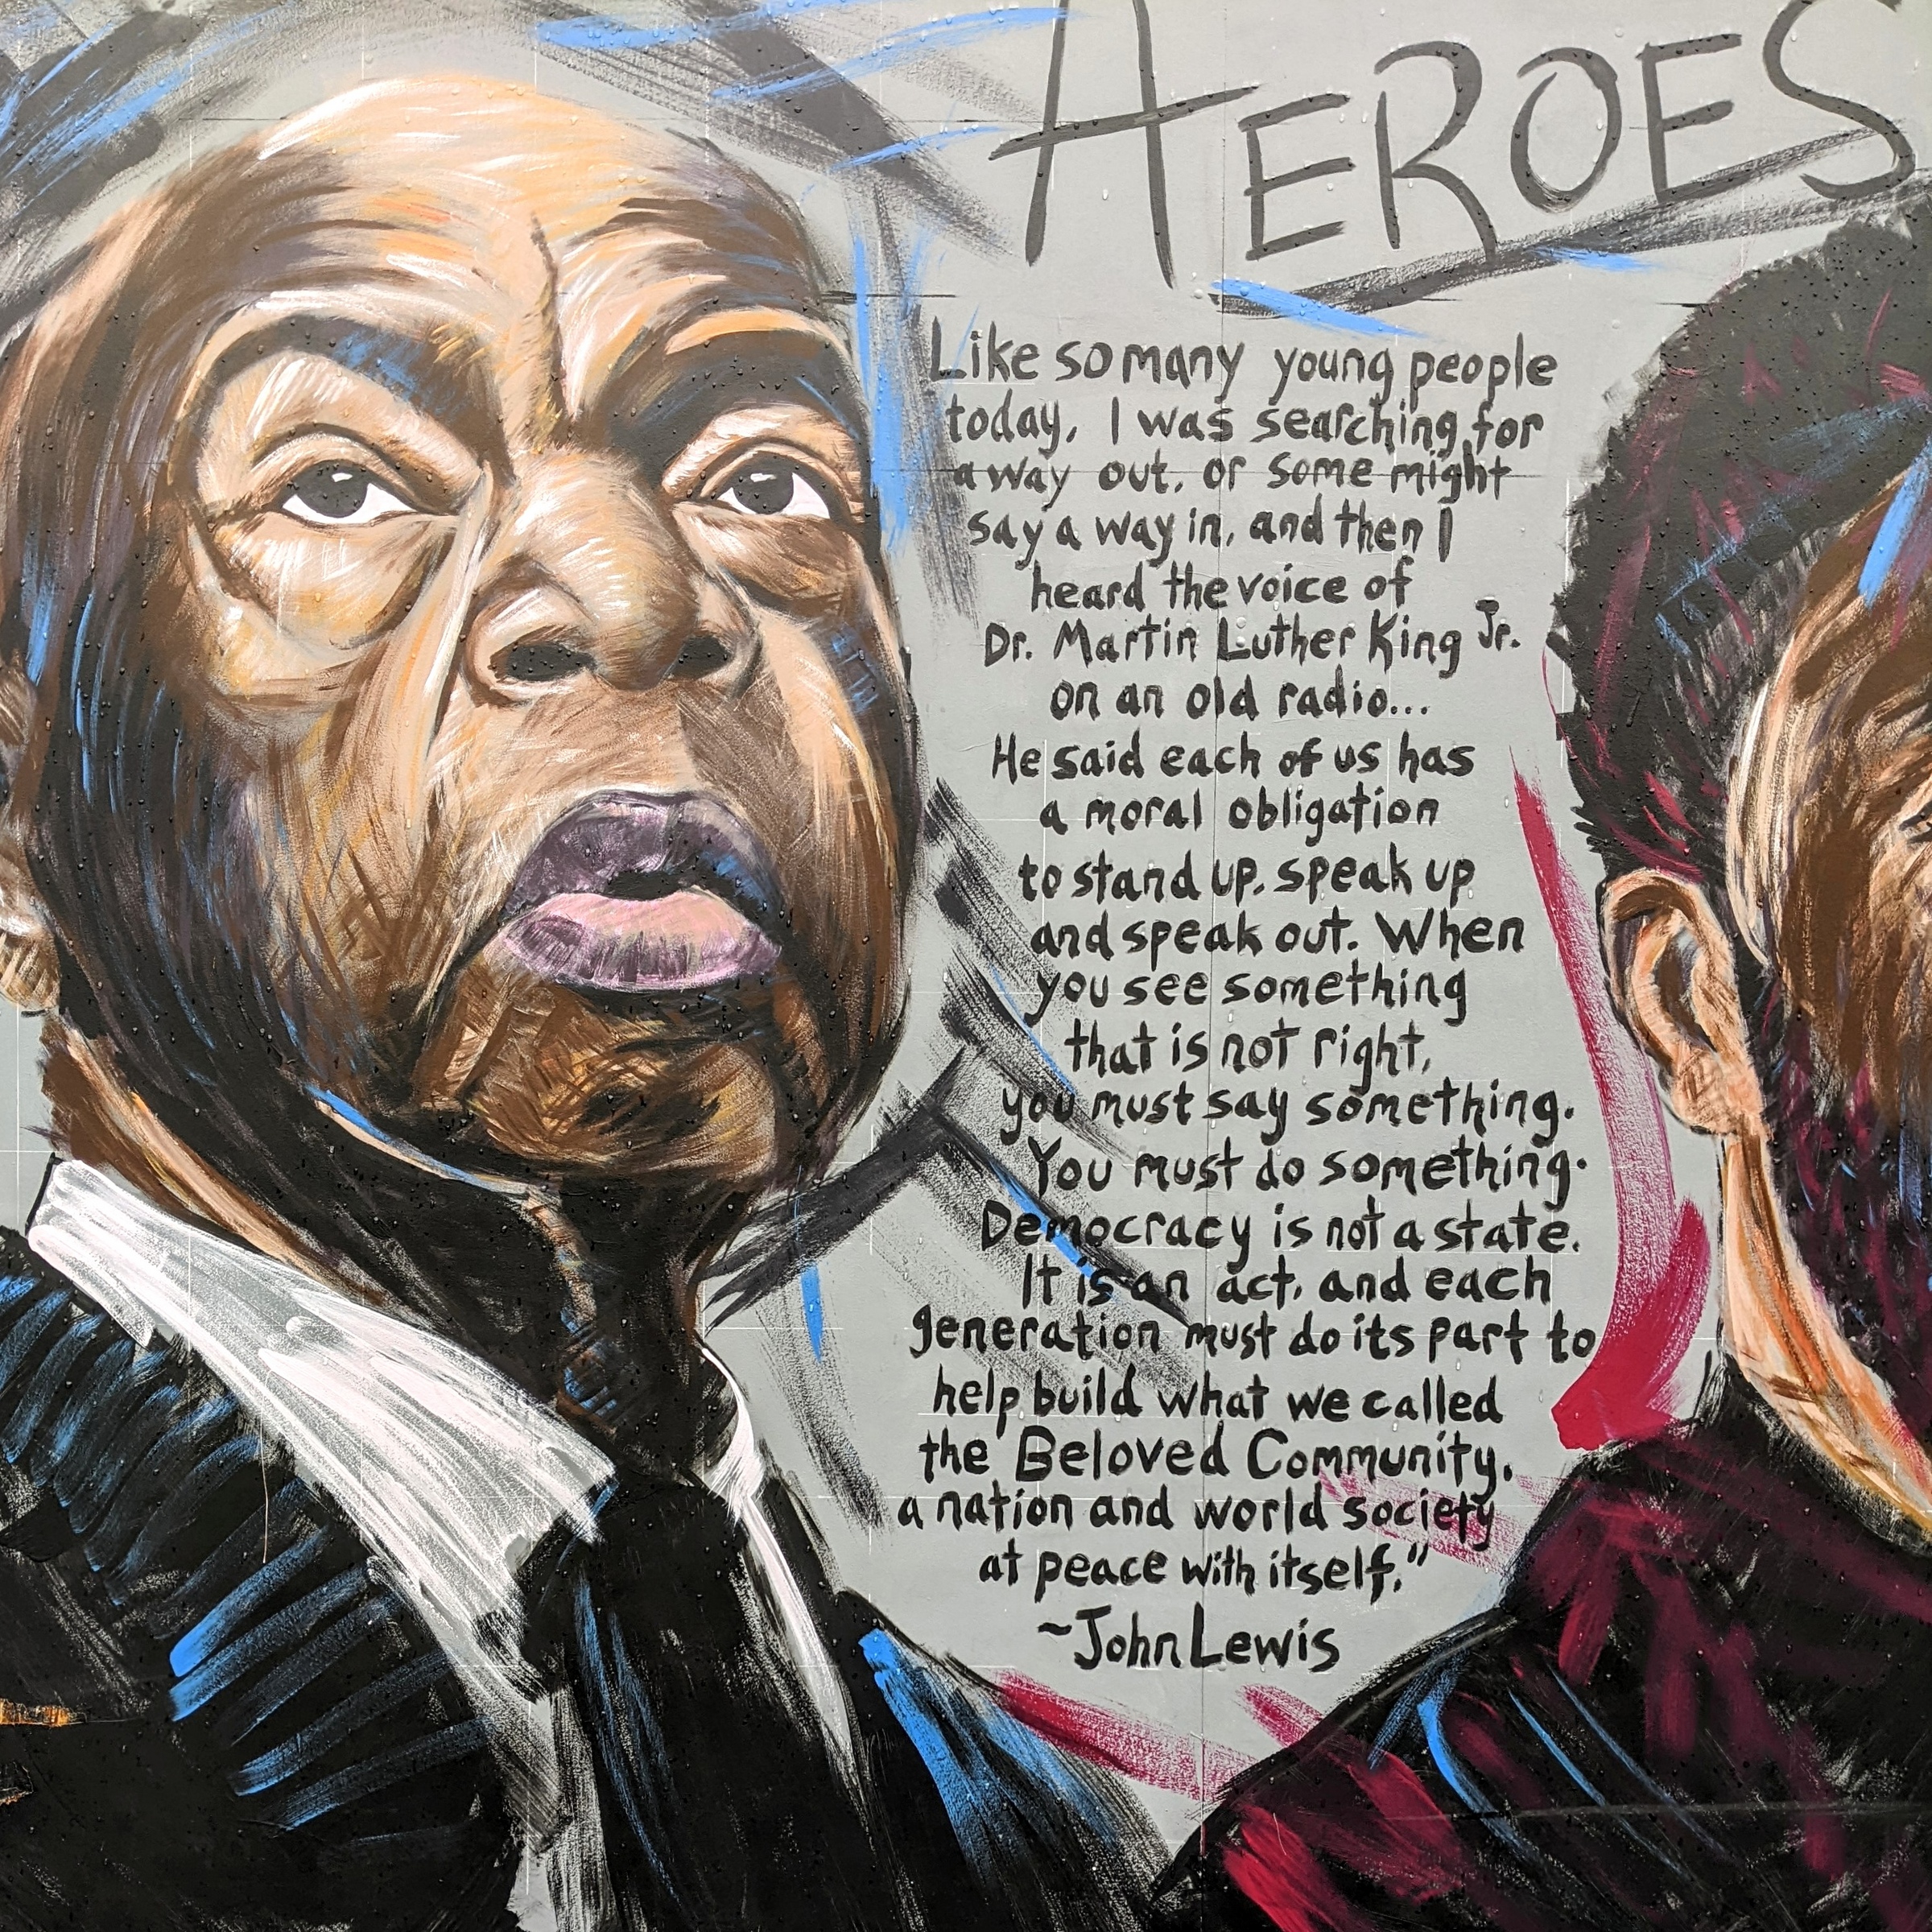 HEROES
Like so many young people
today, I was searching for
a way out, or some might
say a way in, and then I
heard the voice of
Dr. Martin Luther King Jr.
on an old radio...
He said each of us has
a moral obligation
to stand up, speak up
and speak out. When
you see something
that is not right,
you must say something.
You must do something.
Democracy is not a state.
It is an act, and each
generation must do its part to
help build what we called
the Beloved Community,
a nation and world society
at peace with itself."
~John Lewis